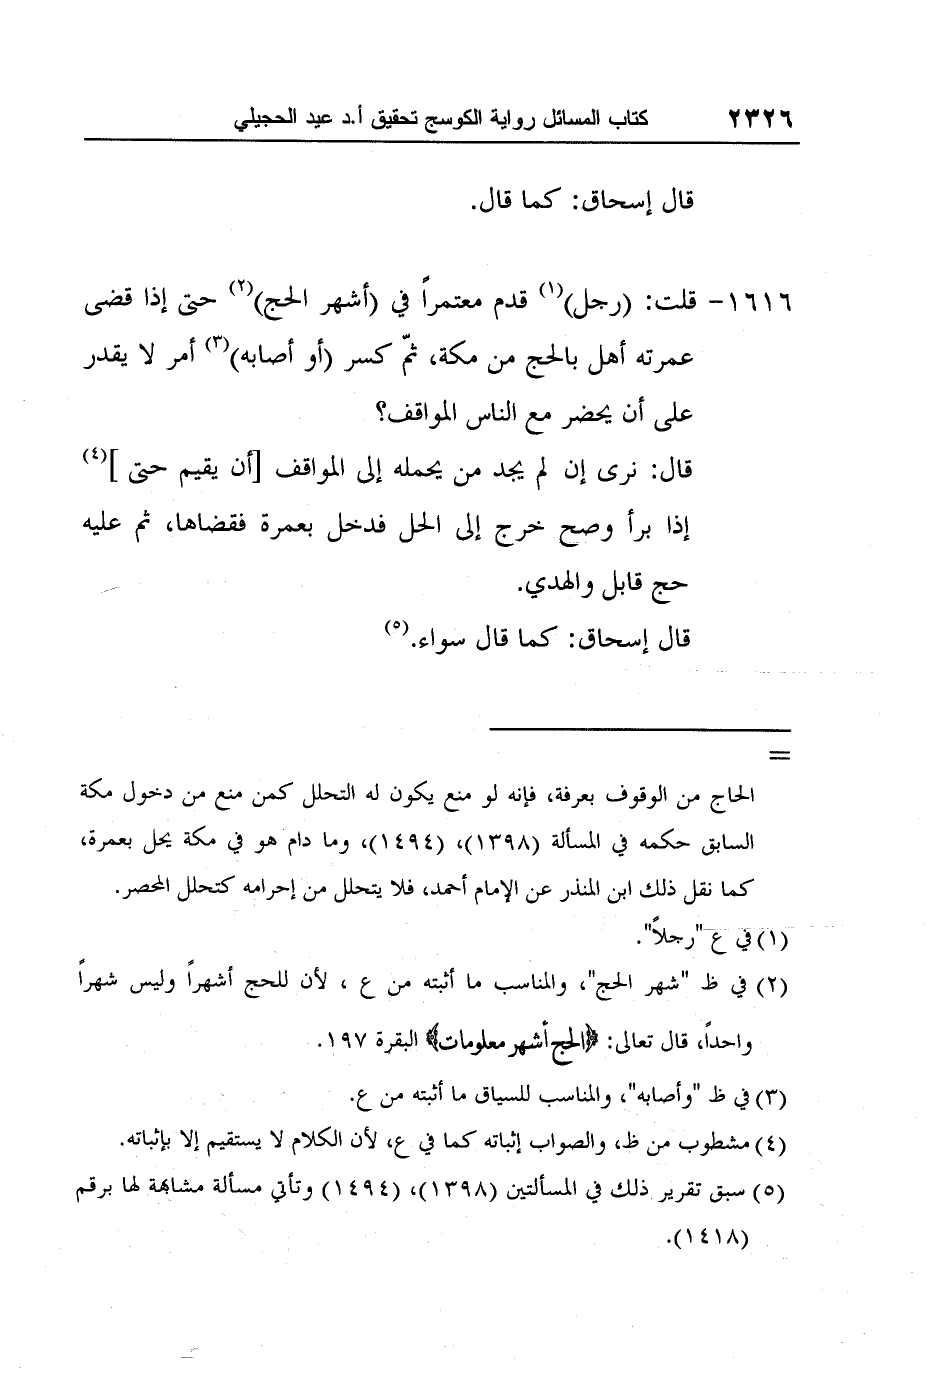 ٢٣٢٦ كتاب المسائل رواية الكوسج تحقيق أ.د عيد الحجيلي
قال إسحاق: كما قال.
١٦١٦- قلت: (رجل)(١) قدم معتمراً في (أشهر الحج)(٢) حتى إذا قضى
عمرته أهل بالحج من مكة، ثمّ كسر (أو أصابه)(٣) أمر لا يقدر
على أن يحضر مع الناس المواقف؟
قال: نرى إن لم يجد من يحمله إلى المواقف [أن يقيم حتى ](٤)
إذا برأ وصح خرج إلى الحل فدخل بعمرة فقضاها، ثم عليه
حج قابل والهدي.
قال إسحاق: كما قال سواء.(٥)
=
الحاج من الوقوف بعرفة، فإنه لو منع يكون له التحلل كمن منع من دخول مكة
السابق حكمه في المسألة (١٣٩٨)، (١٤٩٤)، وما دام هو في مكة يحل بعمرة،
كما نقل ذلك ابن المنذر عن الإمام أحمد، فلا يتحلل من إحرامه كتحلل المحصر.
(١) في ع "رجلاً".
(٢) في ظ "شهر الحج"، والمناسب ما أثبته من ع ، لأن للحج أشهراً وليس شهراً
واحداً، قال تعالى: ﴿الحج أشهر معلومات﴾ البقرة ١٩٧.
(٣) في ظ "وأصابه"، والمناسب للسياق ما أثبته من ع.
(٤) مشطوب من ظ، والصواب إثباته كما في ع، لأن الكلام لا يستقيم إلا بإثباته.
(٥) سبق تقرير ذلك في المسألتين (١٣٩٨)، (١٤٩٤) وتأتي مسألة مشابهة لها برقم
(١٤١٨).